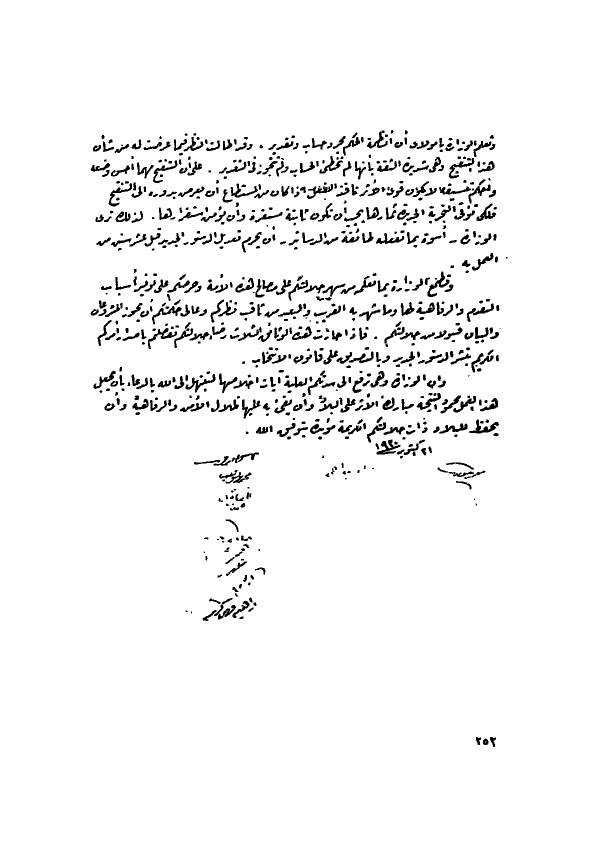 وتعلم الوزارة يا مولاى أن أنظمة الحكم مجرد حساب وتقدير . وقد أطالت النظر فيما عرضت له من شأن
هذا التنقيح وهى شديدة الثقة بأنها لم تخطئ الحساب ولم تتجوز فى التقدير . على أن التنقيح مهما أحسن وضعه
وأحكم تنسيقه لا يكون قوى الأثر نافذ الفعل إذا كان من المستطاع أن يعرض بدوره الى التنقيح
فلكى تؤتى التجربة الجديدة ثمارها يجب أن تكون ثابتة مستقرة وأن يؤمن استقرارها . لذلك ترى
الوزارة ـ أسوة بما تفعله طائفة من الدساتير ـ أن يحرم تعديل الدستور الجديد قبل عشر سنين من
العمل به .
وتطمع الوزارة بما تعلم من سهر جلالتكم على مصالح هذه الأمة وحرصكم على توفير أسباب
التقدم والرفاهية لها وما شهد به القريب والبعيد من ثاقب نظركم وعالى حكمتكم أن يحوز المشروعان
والبيان قبولا من جلالتكم . فاذا حازت هذه الوثائق الثلاث رضا جلالتكم تفضلتم باصدار أمركم
الكريم بنشر الدستور الجديد وبالتصديق على قانون الانتخاب .
وان الوزارة وهى ترفع الى سدتكم العلية آيات اخلاصها لتبتهل الى الله بالدعاء بأن يجعل
هذا العمل محمود النتيجة مبارك الأثر على البلاد وأن يفئ به عليها ظلال الأمن والرفاهية وأن
يحفظ للبلاد ذات جلالتكم الكريمة مؤيدة بتوفيق الله .
٢١ أكتوبر ١٩٣٠
ابراهيم فهمى كريم
٢٥٢